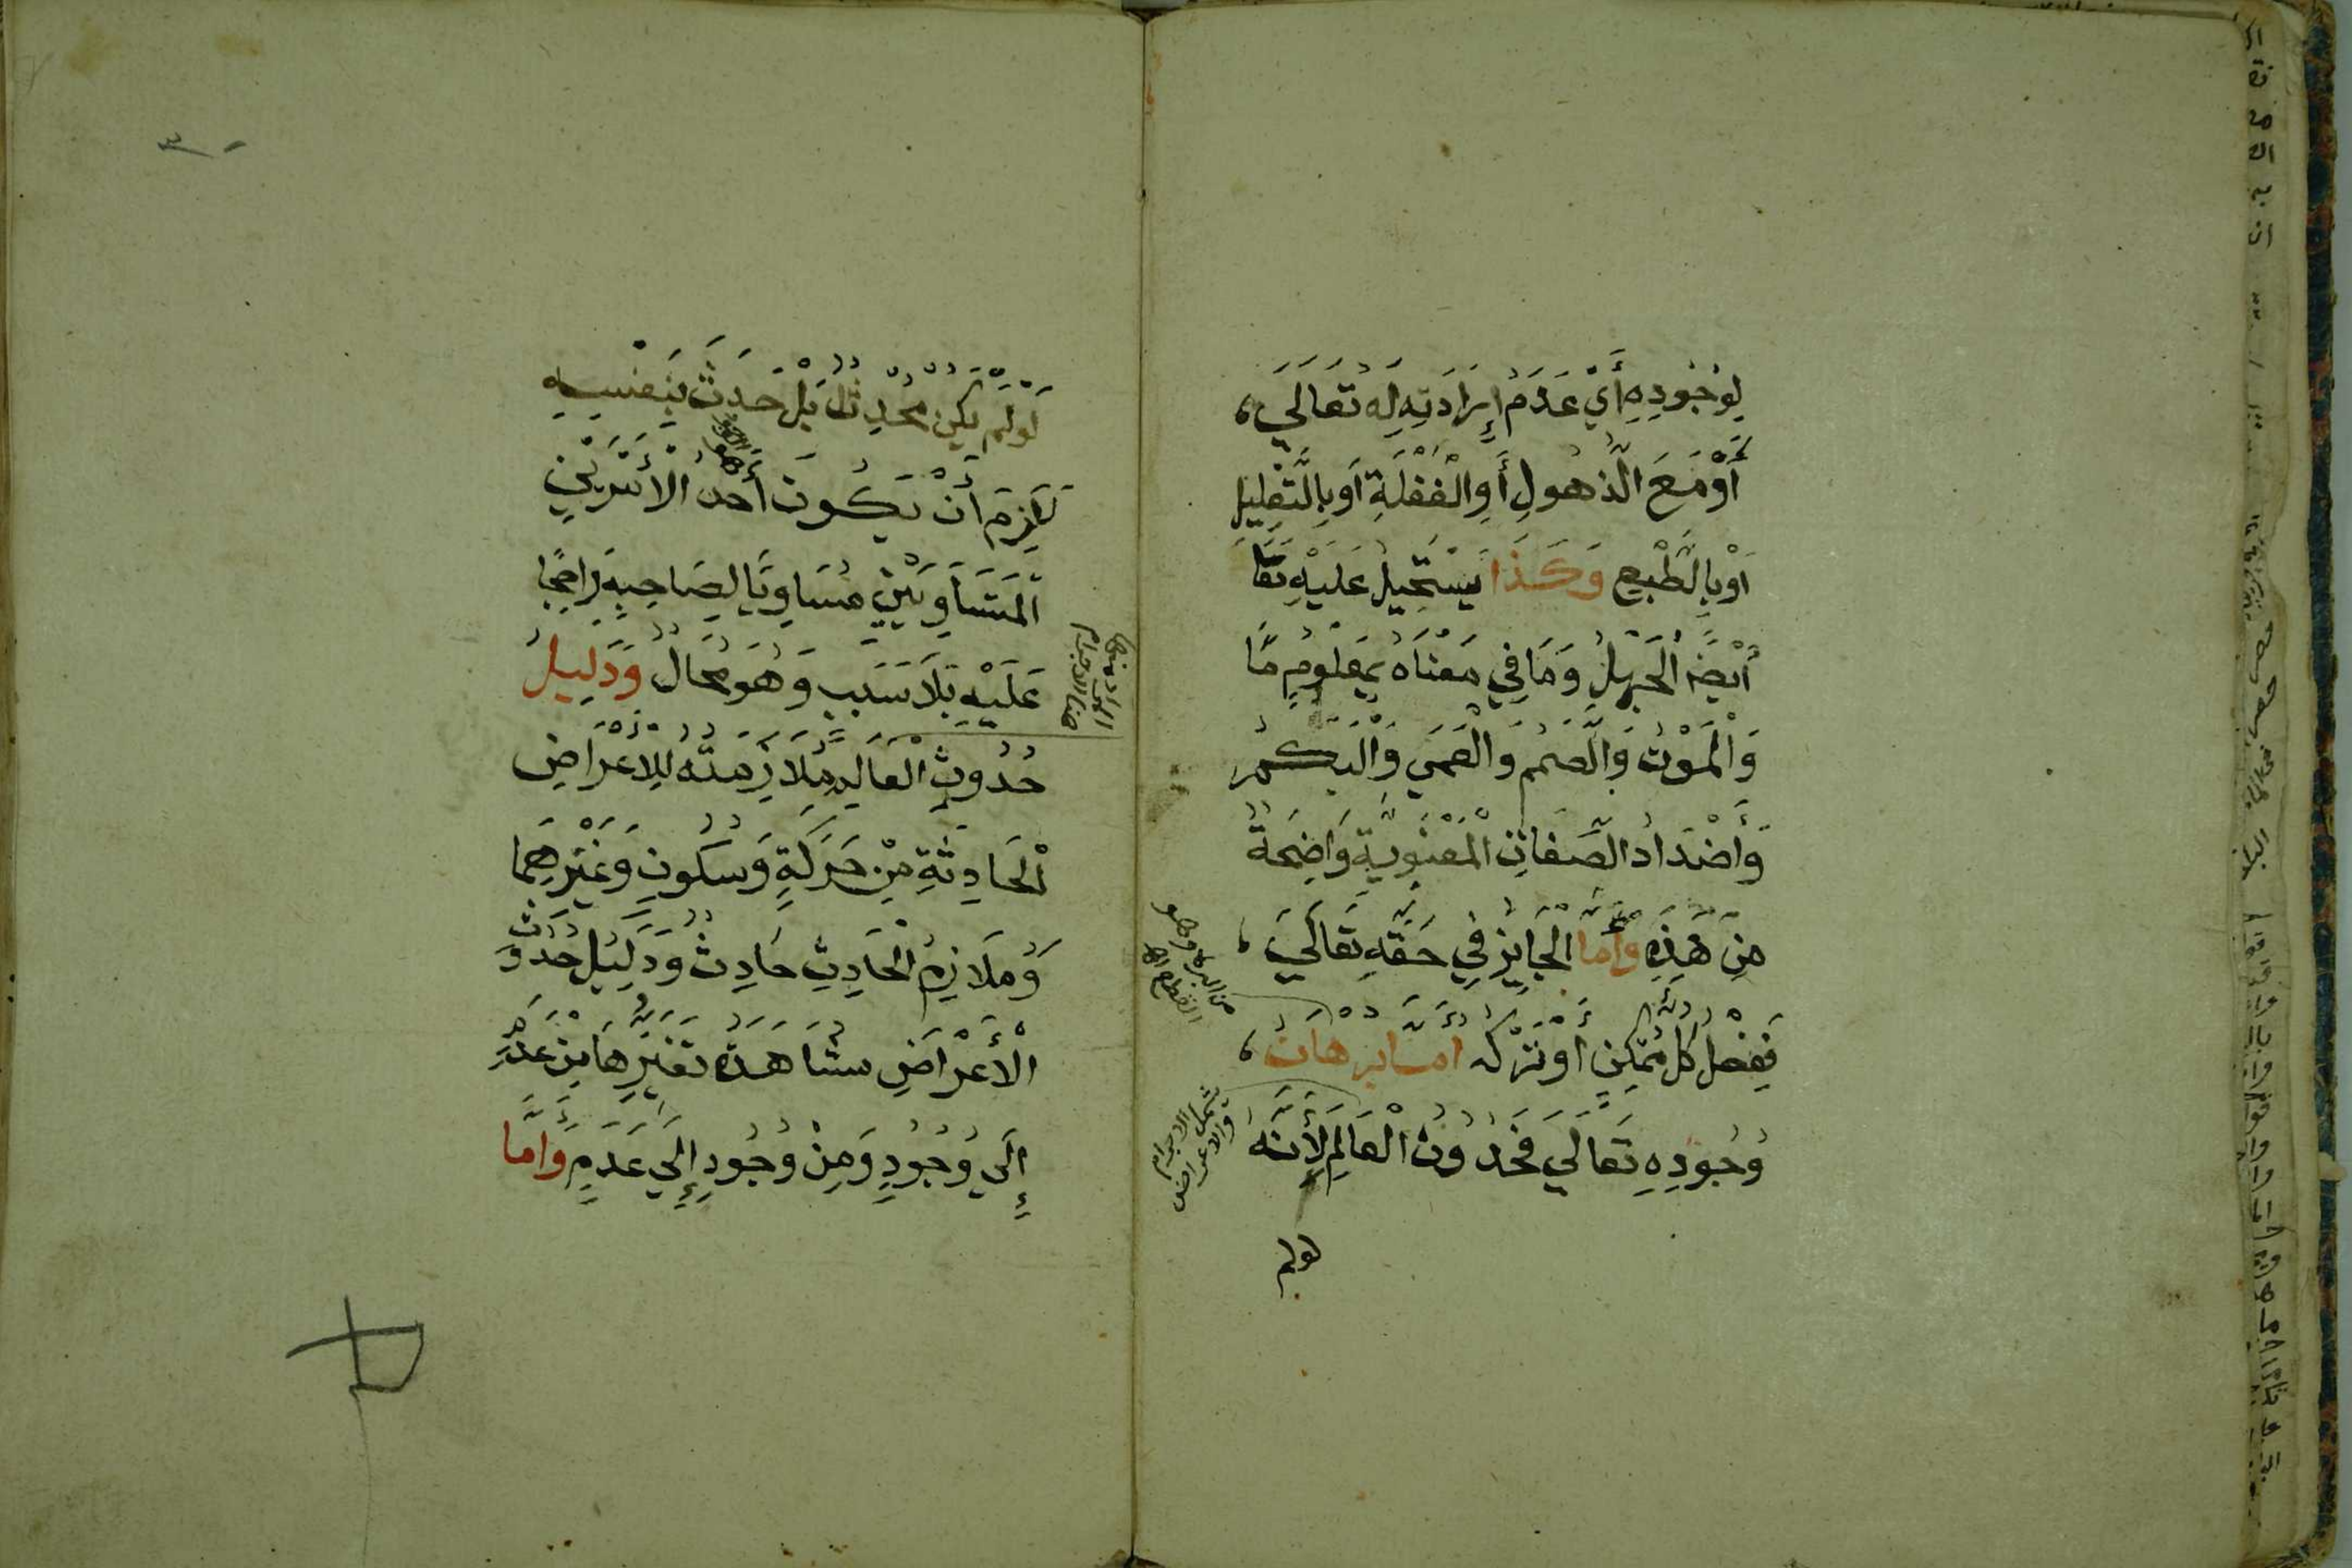 لِوُجُودِهِ أَيْ عَدَمُ إِرَادَتِهِ لَهُ تَعَالَي،
أَوْ مَعَ الذُّهُولِ أَوِ الْغَفْلَةِ أَوْ بِالتَّعْلِيلِ
أَوْ بِالطَّبْعِ وَكَذَا يَسْتَحِيلُ عَلَيْهِ تَعَا
أَيْضًا الْجَهْلُ وَمَا فِي مَعْنَاهُ بِمَعْلُومٍ مَّا
وَالْمَوْتُ وَالصَّمَمُ وَالْعَمَي وَالْبَكَمُ
وَأَضْدَادُ الصِّفَاتِ الْمَعْنَوِيَّةِ وَاضِحَةٌ
مِنْ هَذِهِ وَأَمَّا الْجَايِزُ فِي حَقِّهِ تَعَالَيَ،
فَفِعْلُ كُلِّ مُمْكِنٍ أَوْ تَرْكُهُ أَمَّا بُرْهَانُ،
وُجُودِهِ تَعَالَي فَحُدُوثُ الْعَالَمِ لِأَنَّهُ
يشمل الاجرام
والاعراض
لولم
لَوْ لَمْ يَكُنْ مُحْدِثٌ بَلْ حَدَثَ بِنَفْسِهِ
لَزِمَ أَنْ يَكُونَ أَحَدُ الْأَمْرَيْنِ
الْمُتَسَاوِيَيْنِ مُسَاوِيًا لِصَاحِبِهِ رَاجِحًا
عَلَيْهِ بِلَا سَبَبٍ وَهُوَ مُحَالٌ وَدَلِيلُ
المراد بها
هنا الاجرام
حُدُوثِ الْعَالَمِ مُلَازَمَتُهُ لِلْأَعْرَاضِ
الْحَادِثَةِ مِنْ حَرَكَةٍ وَسُكُونٍ وَغَيْرِهِمَا
وَمُلَازِمُ الْحَادِثِ حَادِثٌ وَدَلِيلُ حُدُوثِ
الْأَعْرَاضِ مُشَاهَدَةُ تَغَيُّرِهَا مِنْ عَدَمٍ
إِلَي وُجُودٍ وَمِنْ وُجُودٍ إِلَي عَدَمٍ وَأَمَّا